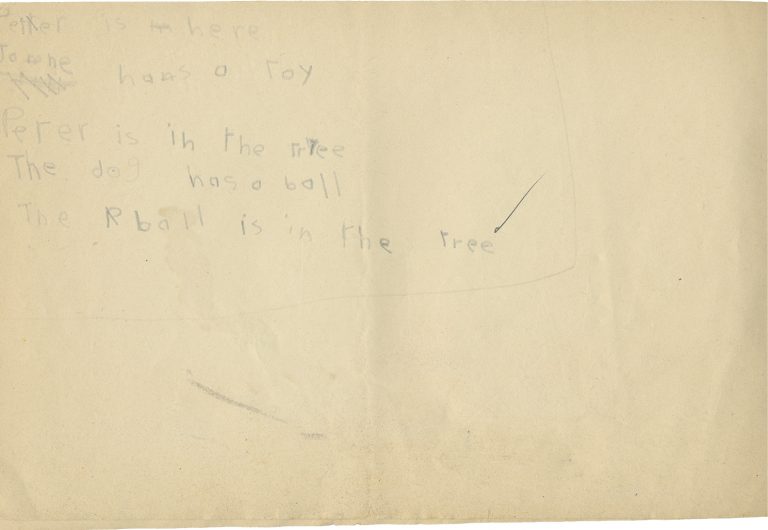 Peter is here
Janne
hans a toy
Peter is in the tree
The dog has a ball
The R ball is in the tree